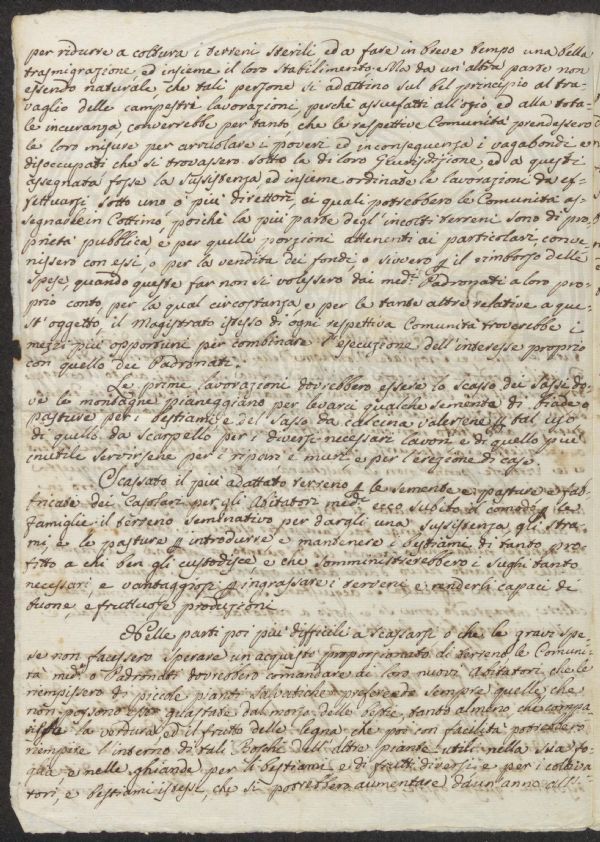 per ridurre a coltura i terreni sterili ed a fare in breve tempo una bella
trasmigrazione ed insieme il loro stabilimento, e sla da un'altra parte non
essendo naturale che tali persone si adattino sul bel principio al tra-
vaglio delle campestri lavorazioni perchè assuefatti all'ozio ed alla tota-
le incuranza, converrebbe per tanto, che le respettive Comunità prendessero
le loro misure per arruolare i poveri ed in conseguenza i vagabondi e
disoccupati che si trovassero sotto la di loro Giurisdizione, ed a questi
assegnata fosse la sussistenza, ed insieme ordinate le lavorazioni da ef-
fettuarsi sotto uno o più direttori, ai quali potrebbero le Comunità as-
segnarle in Cottimo, poichè la più parte degl'incolti terreni sono di pro-
prietà pubblica, e per quelle porzioni attenenti ai particolari conve-
nissero con essi, o per la vendita dei fondi, o sivvero p il rimborso delle
spese, quando queste far non si volessero dai med.i Padronati a loro pro-
prio conto, per la qual circostanza, e per le tante altre relative a que-
st'oggetto, il Magistrato istesso di ogni respettiva Comunità troverebbe i
mezzi più opportuni per combinare l'esecuzione dell'interesse proprio
con quello dei Padronati.
Le prime lavorazioni dovrebbero essere lo scasso dei sassi do-
ve le montagne pianeggiano per levarci qualche sementa di biade o
pasture per i bestiami, e del sasso da calcina valersene p tal uso
di quello da scarpello per i diversi necessari lavori e di quello più
inutile servirsene per i ripari e muri e per l'erezione di case
Scassato il più adattato terreno p le semente e pasture e fab-
bricate dei Casolari per gli Abitatori med.i ecco subito il comodo p le
famiglie: il terreno seminativo per dargli una sussistenza gli stra-
mi, e le pasture p introdurre e mantenere i bestiami di tanto pro-
fitto a chi ben gli custodisce e che somministrerebbero i sughi tanto
necessari, e vantaggiosi p ingrassare i terreni e renderli capaci di
buone, e fruttuose produzioni
Nelle parti poi più difficili a scassarsi o che le gravi spe-
se non facessero sperare un acquisto proporzionato di terreno le Comuni-
tà med.e o Padronati dovrebbero comandare ai loro nuovi Abitatori che le
riempissero di piccole pianti salvatiche preferire sempre quelle che
non possono guastate dal morso delle bestie, tanto almeno che compa-
la verdura ed il frutto delle legna che poi con facilità potrebbero
riempire l'interno di tali Boschi dell'altre piante utili nella sua fo-
e nelle ghiande per li bestiami e di frutti diversi e per i coltiva-
tori, e bestiami istessi, che si potrebbero aumentare da un'anno all'-